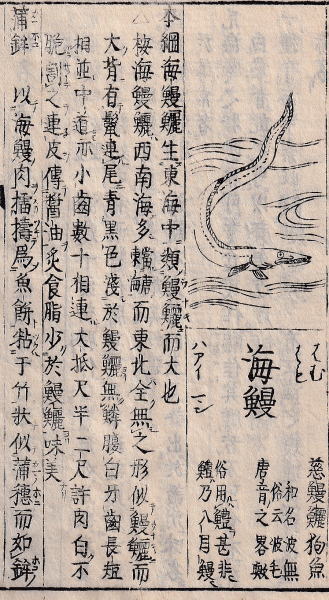 はむ
はも
海鰻
ハアイ マン
慈鰻鱺 狗魚
和名波無
俗云波毛
唐音之畧歟
俗用鱧甚非
鱧乃八目鰻
本綱海鰻鱺生東海中類鰻鱺而大也
△按海鰻鱺西南海多而東北全無之形似鰻鱺而
大背有鬣連尾青黒色淺於鰻鱺無鱗腹白牙齒長短
相並中道亦小齒數十相連大抵尺半二尺許肉白不
脆割之連皮傅醬油炙食脂少於鰻鱺味美
蒲鉾 以海鰻肉擂擣爲魚餅粘于竹狀似蒲穗而如鉾